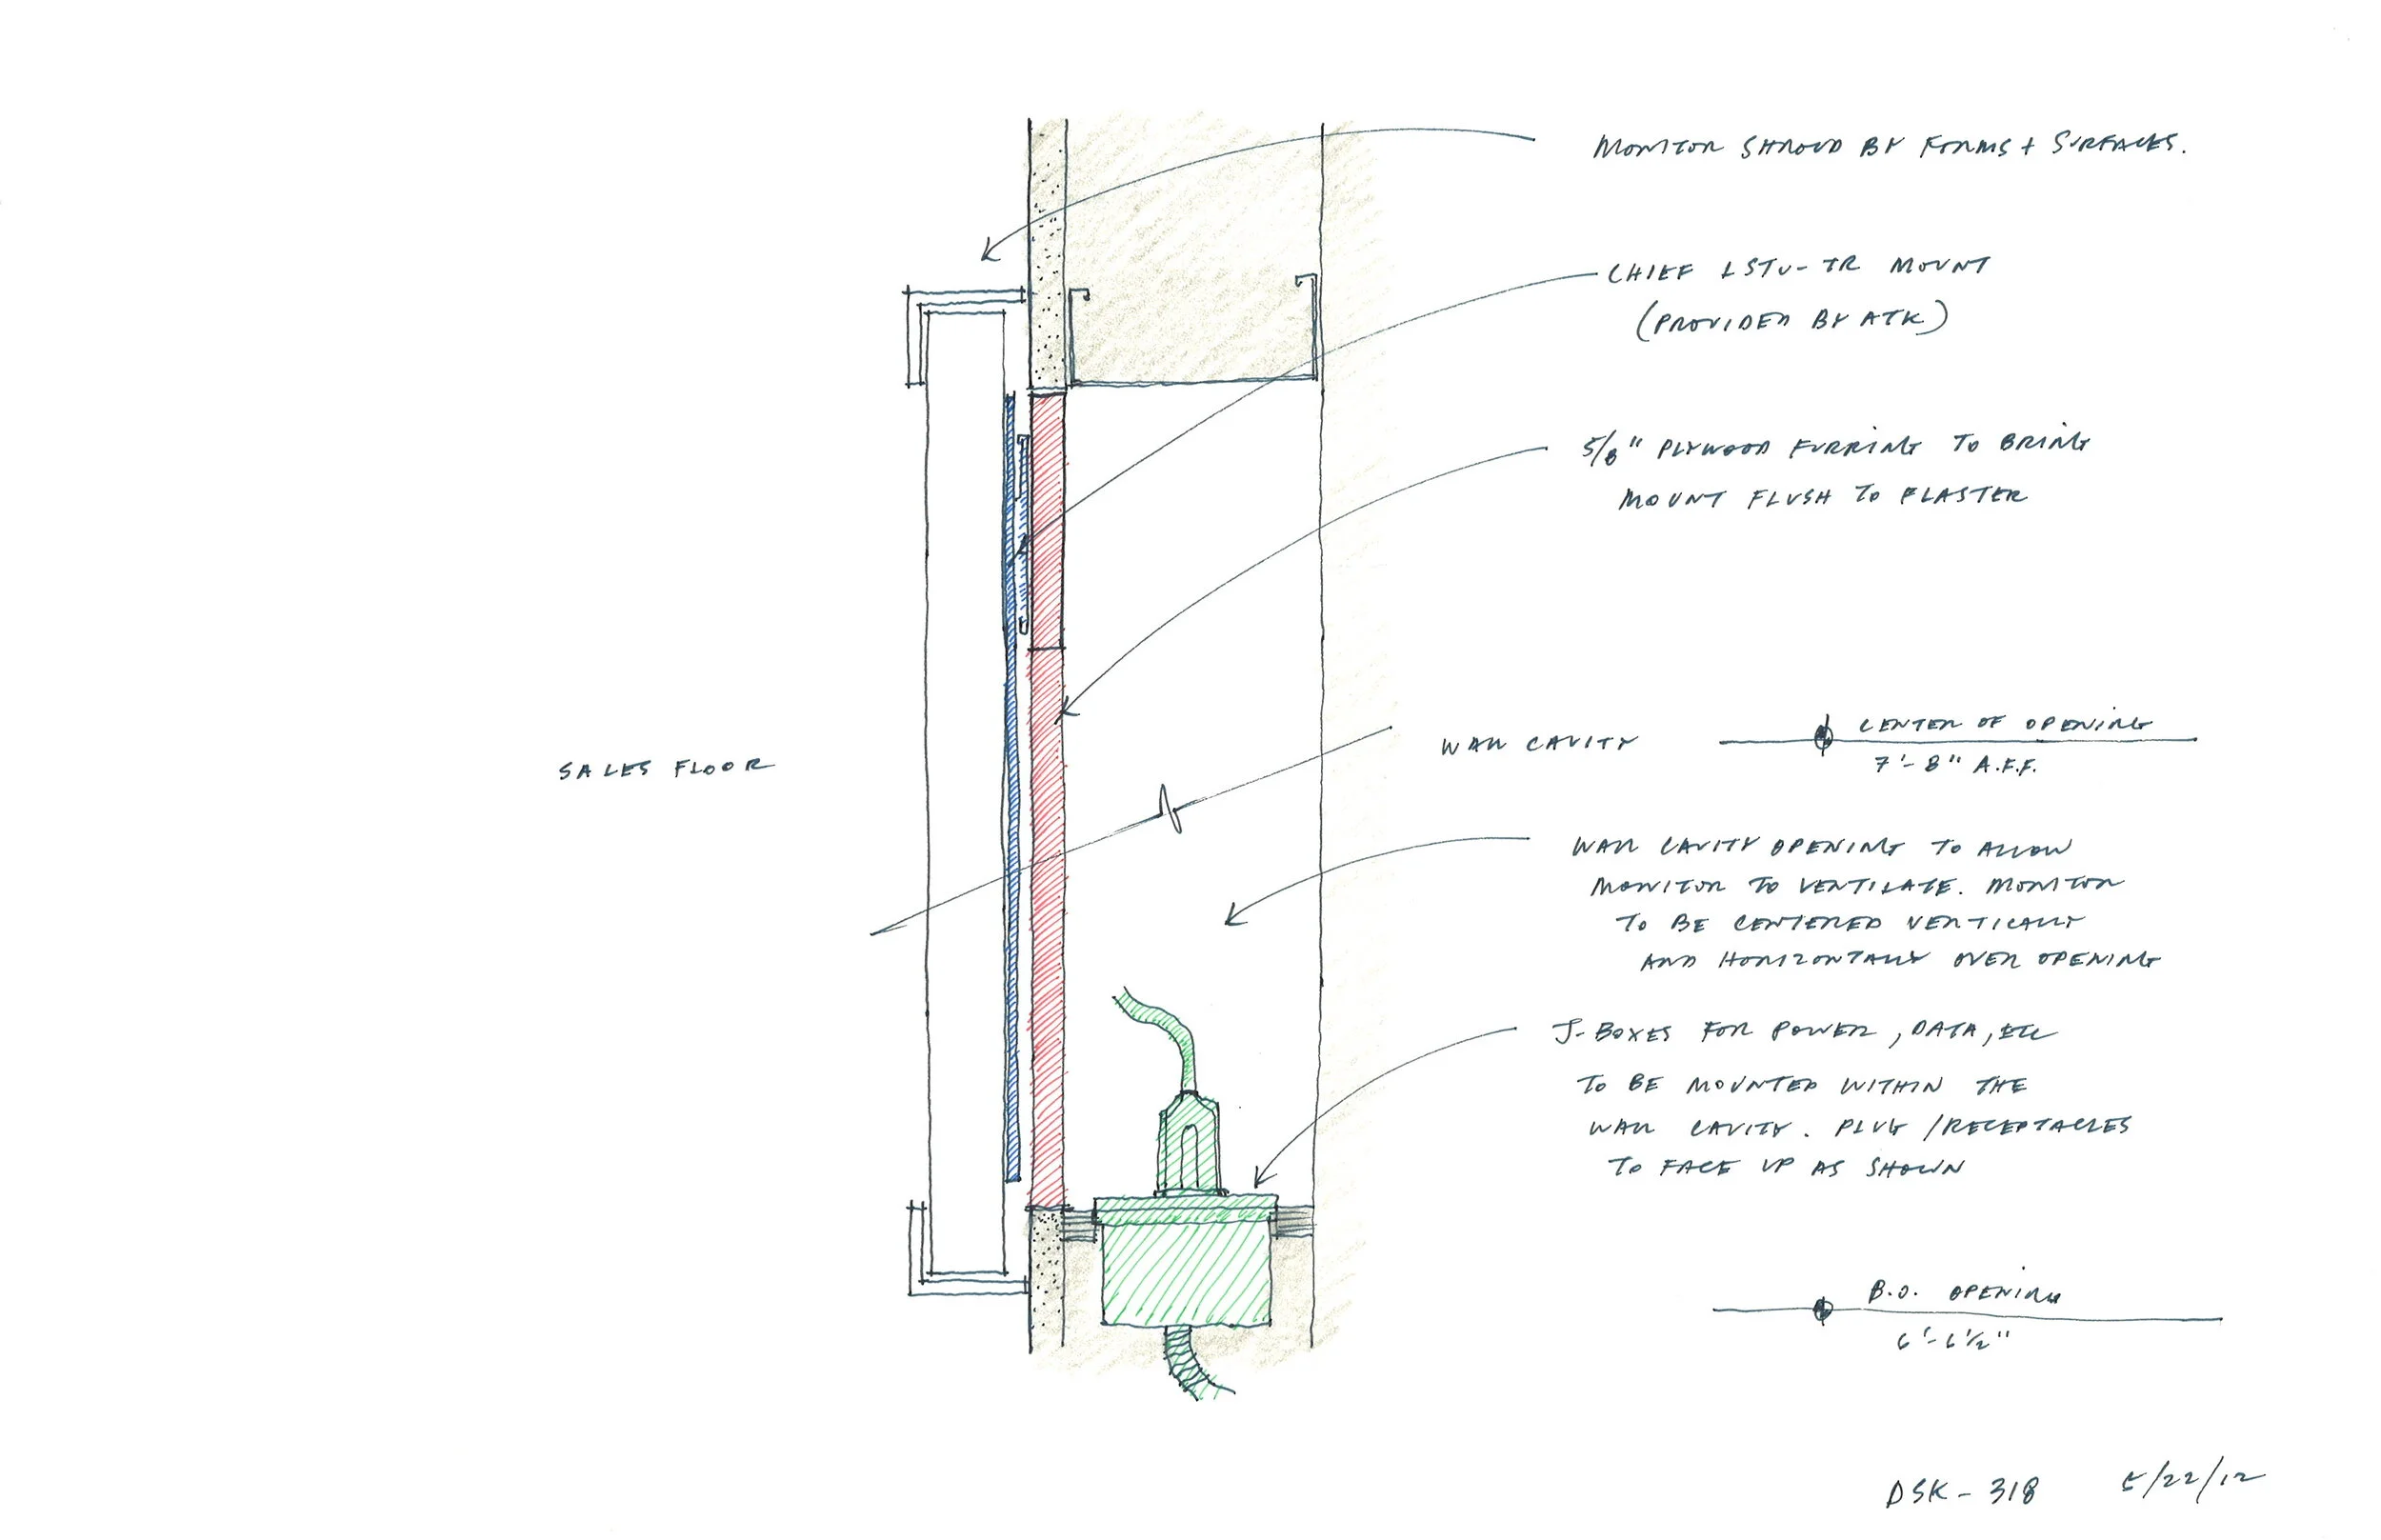 MONITOR SHROUD BY FORMS + SURFACES.
CHIEF LSTU-TR MOUNT
(PROVIDED BY ATK)
5/8" PLYWOOD FURRING TO BRING
MOUNT FLUSH TO PLASTER
SALES FLOOR
WALL CAVITY
CENTER OF OPENING
7'-8" A.F.F.
WALL CAVITY OPENING TO ALLOW
MONITOR TO VENTILATE. MONITOR
TO BE CENTERED VERTICALLY
AND HORIZONTALLY OVER OPENING
J-BOXES FOR POWER, DATA, ETC
TO BE MOUNTED WITHIN THE
WALL CAVITY. PLUG/RECEPTACLES
TO FACE UP AS SHOWN
B.O. OPENING
6'-6 1/2"
DSK-318 5/22/12